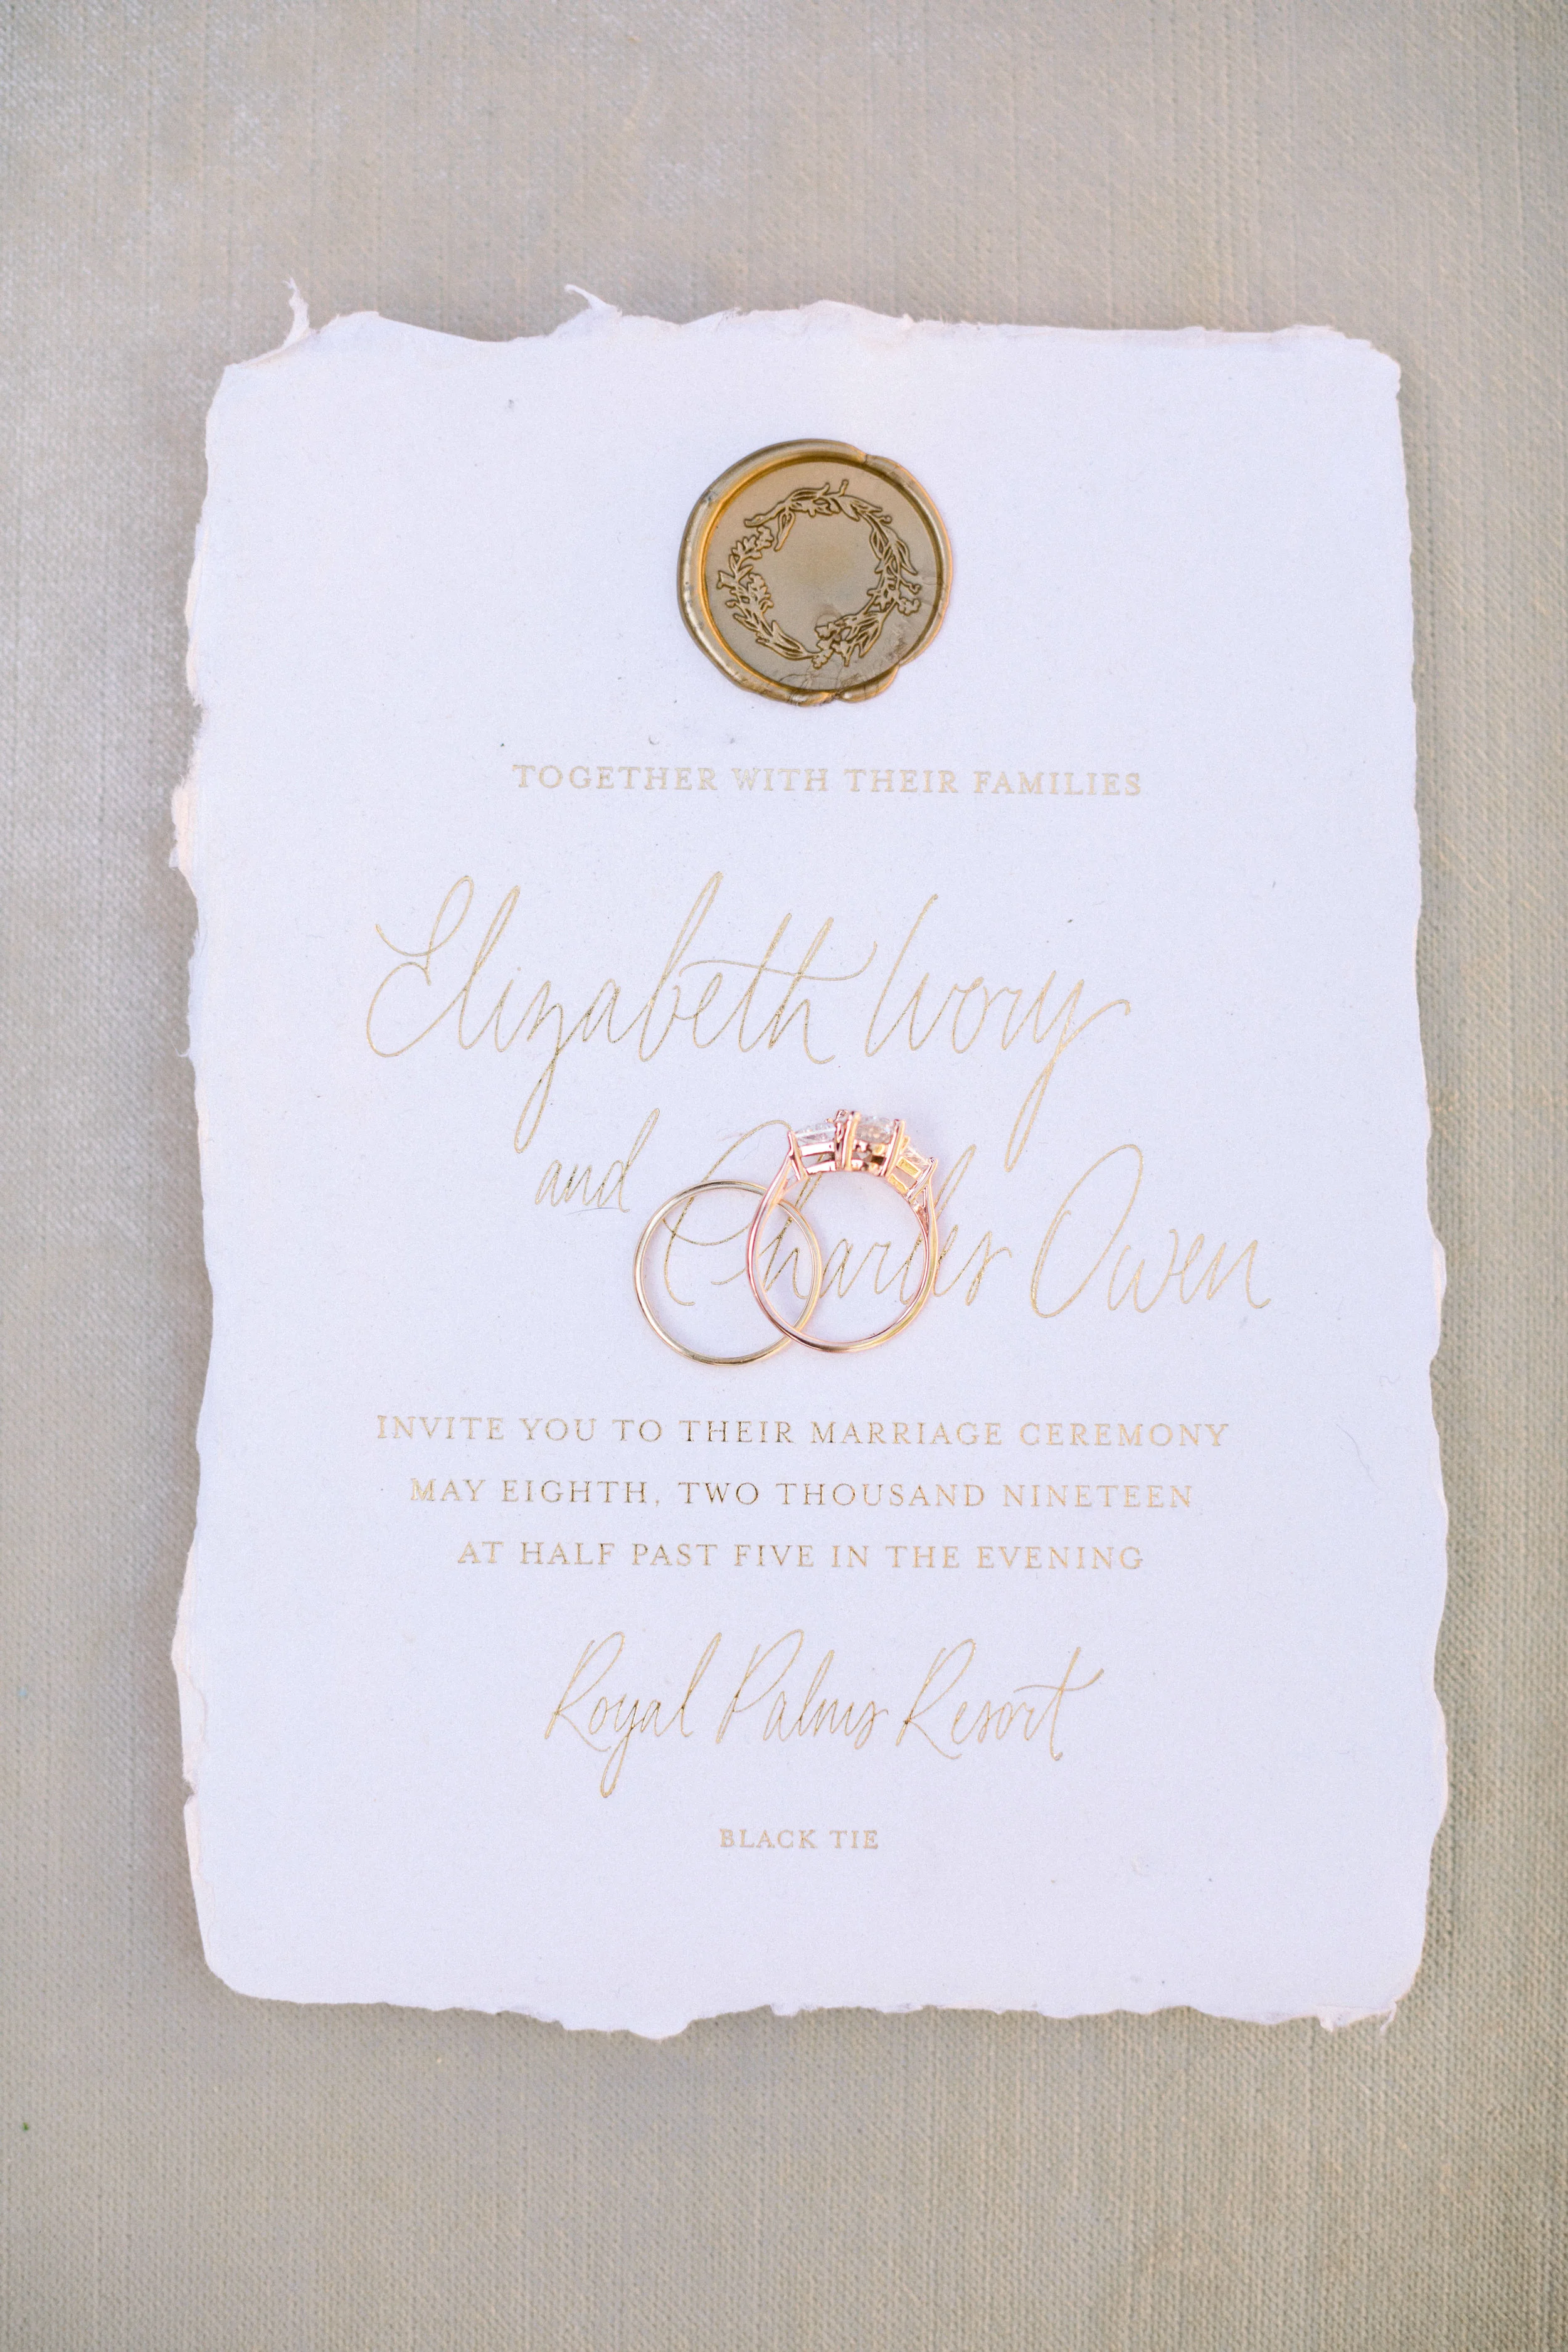 TOGETHER WITH THEIR FAMILIES
Elizabeth Ivory
and Charles Owen
INVITE YOU TO THEIR MARRIAGE CEREMONY
MAY EIGHTH, TWO THOUSAND NINETEEN
AT HALF PAST FIVE IN THE EVENING
Royal Palms Resort
BLACK TIE